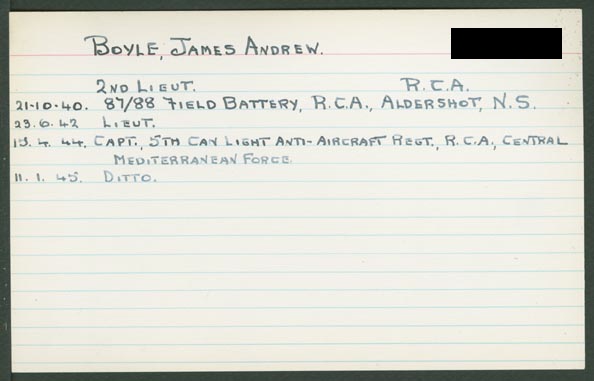 BOYLE, JAMES ANDREW.
2ND LIEUT. R.C.A.
21·10·40. 87/88 FIELD BATTERY, R.C.A., ALDERSHOT, N.S.
23.6.42 LIEUT.
13.4.44. CAPT., 5TH CAN LIGHT ANTI-AIRCRAFT REGT., R.C.A, CENTRAL
MEDITERRANEAN FORCE.
11.1.45. DITTO.